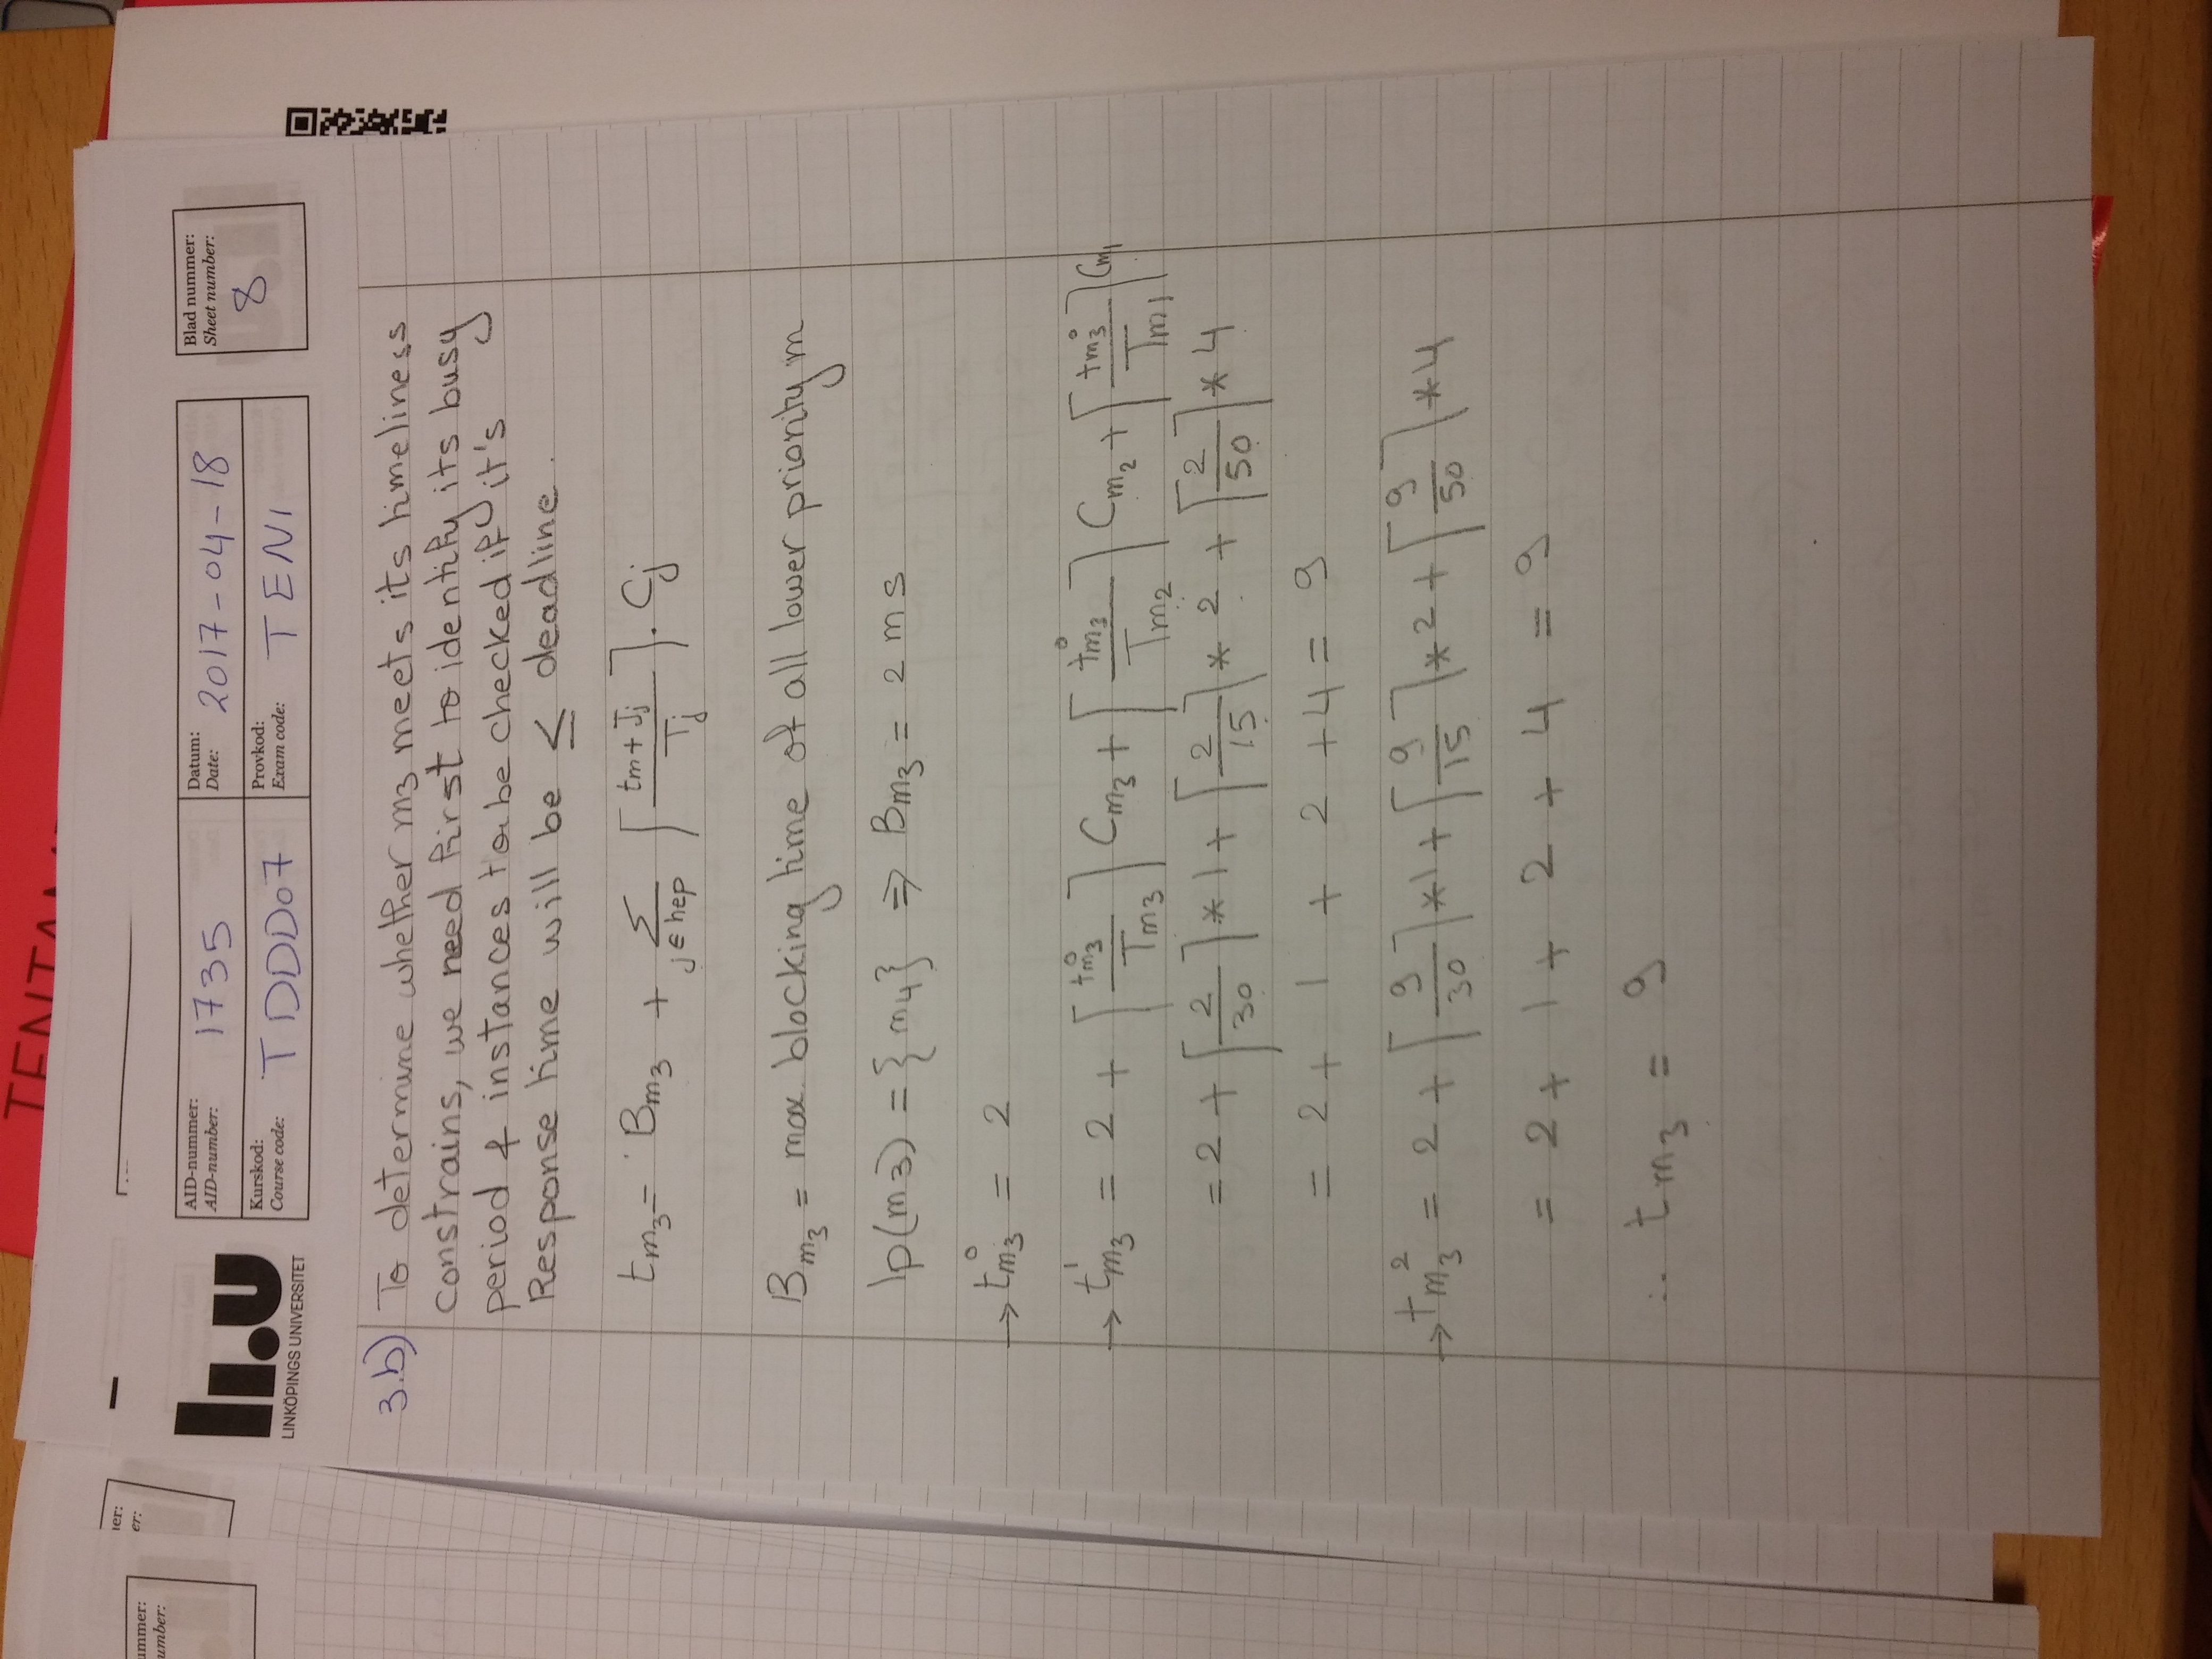 TENTA
AID-nummer:
AID-number:
1735
Datum:
Date:
2017-04-18
Blad nummer:
Sheet number:
8
Kurskod:
Course code:
TDDD07
Provkod:
Exam code:
TEN1
li.u
LINKÖPINGS UNIVERSITET
3.b) To determine whether m3 meets its timeliness
constrains, we need first to identify its busy
period & instances to be checked if it's
Response time will be ≤ deadline.
t_m3 = B_m3 + Σ_{j∈hep} ⌈(tm+Jj)/Tj⌉ . Cj
B_m3 = max blocking time of all lower priority m
lp(m3) = {m4} ⇒ B_m3 = 2 ms
→ t⁰_m3 = 2
→ t¹_m3 = 2 + ⌈t⁰_m3/T_m3⌉ C_m3 + ⌈t⁰_m3/T_m2⌉ C_m2 + ⌈t⁰_m3/T_m1⌉ C_m1
= 2 + ⌈2/30⌉*1 + ⌈2/15⌉*2 + ⌈2/50⌉*4
= 2 + 1 + 2 + 4 = 9
→ t²_m3 = 2 + ⌈9/30⌉*1 + ⌈9/15⌉*2 + ⌈9/50⌉*4
= 2 + 1 + 2 + 4 = 9
∴ t_m3 = 9